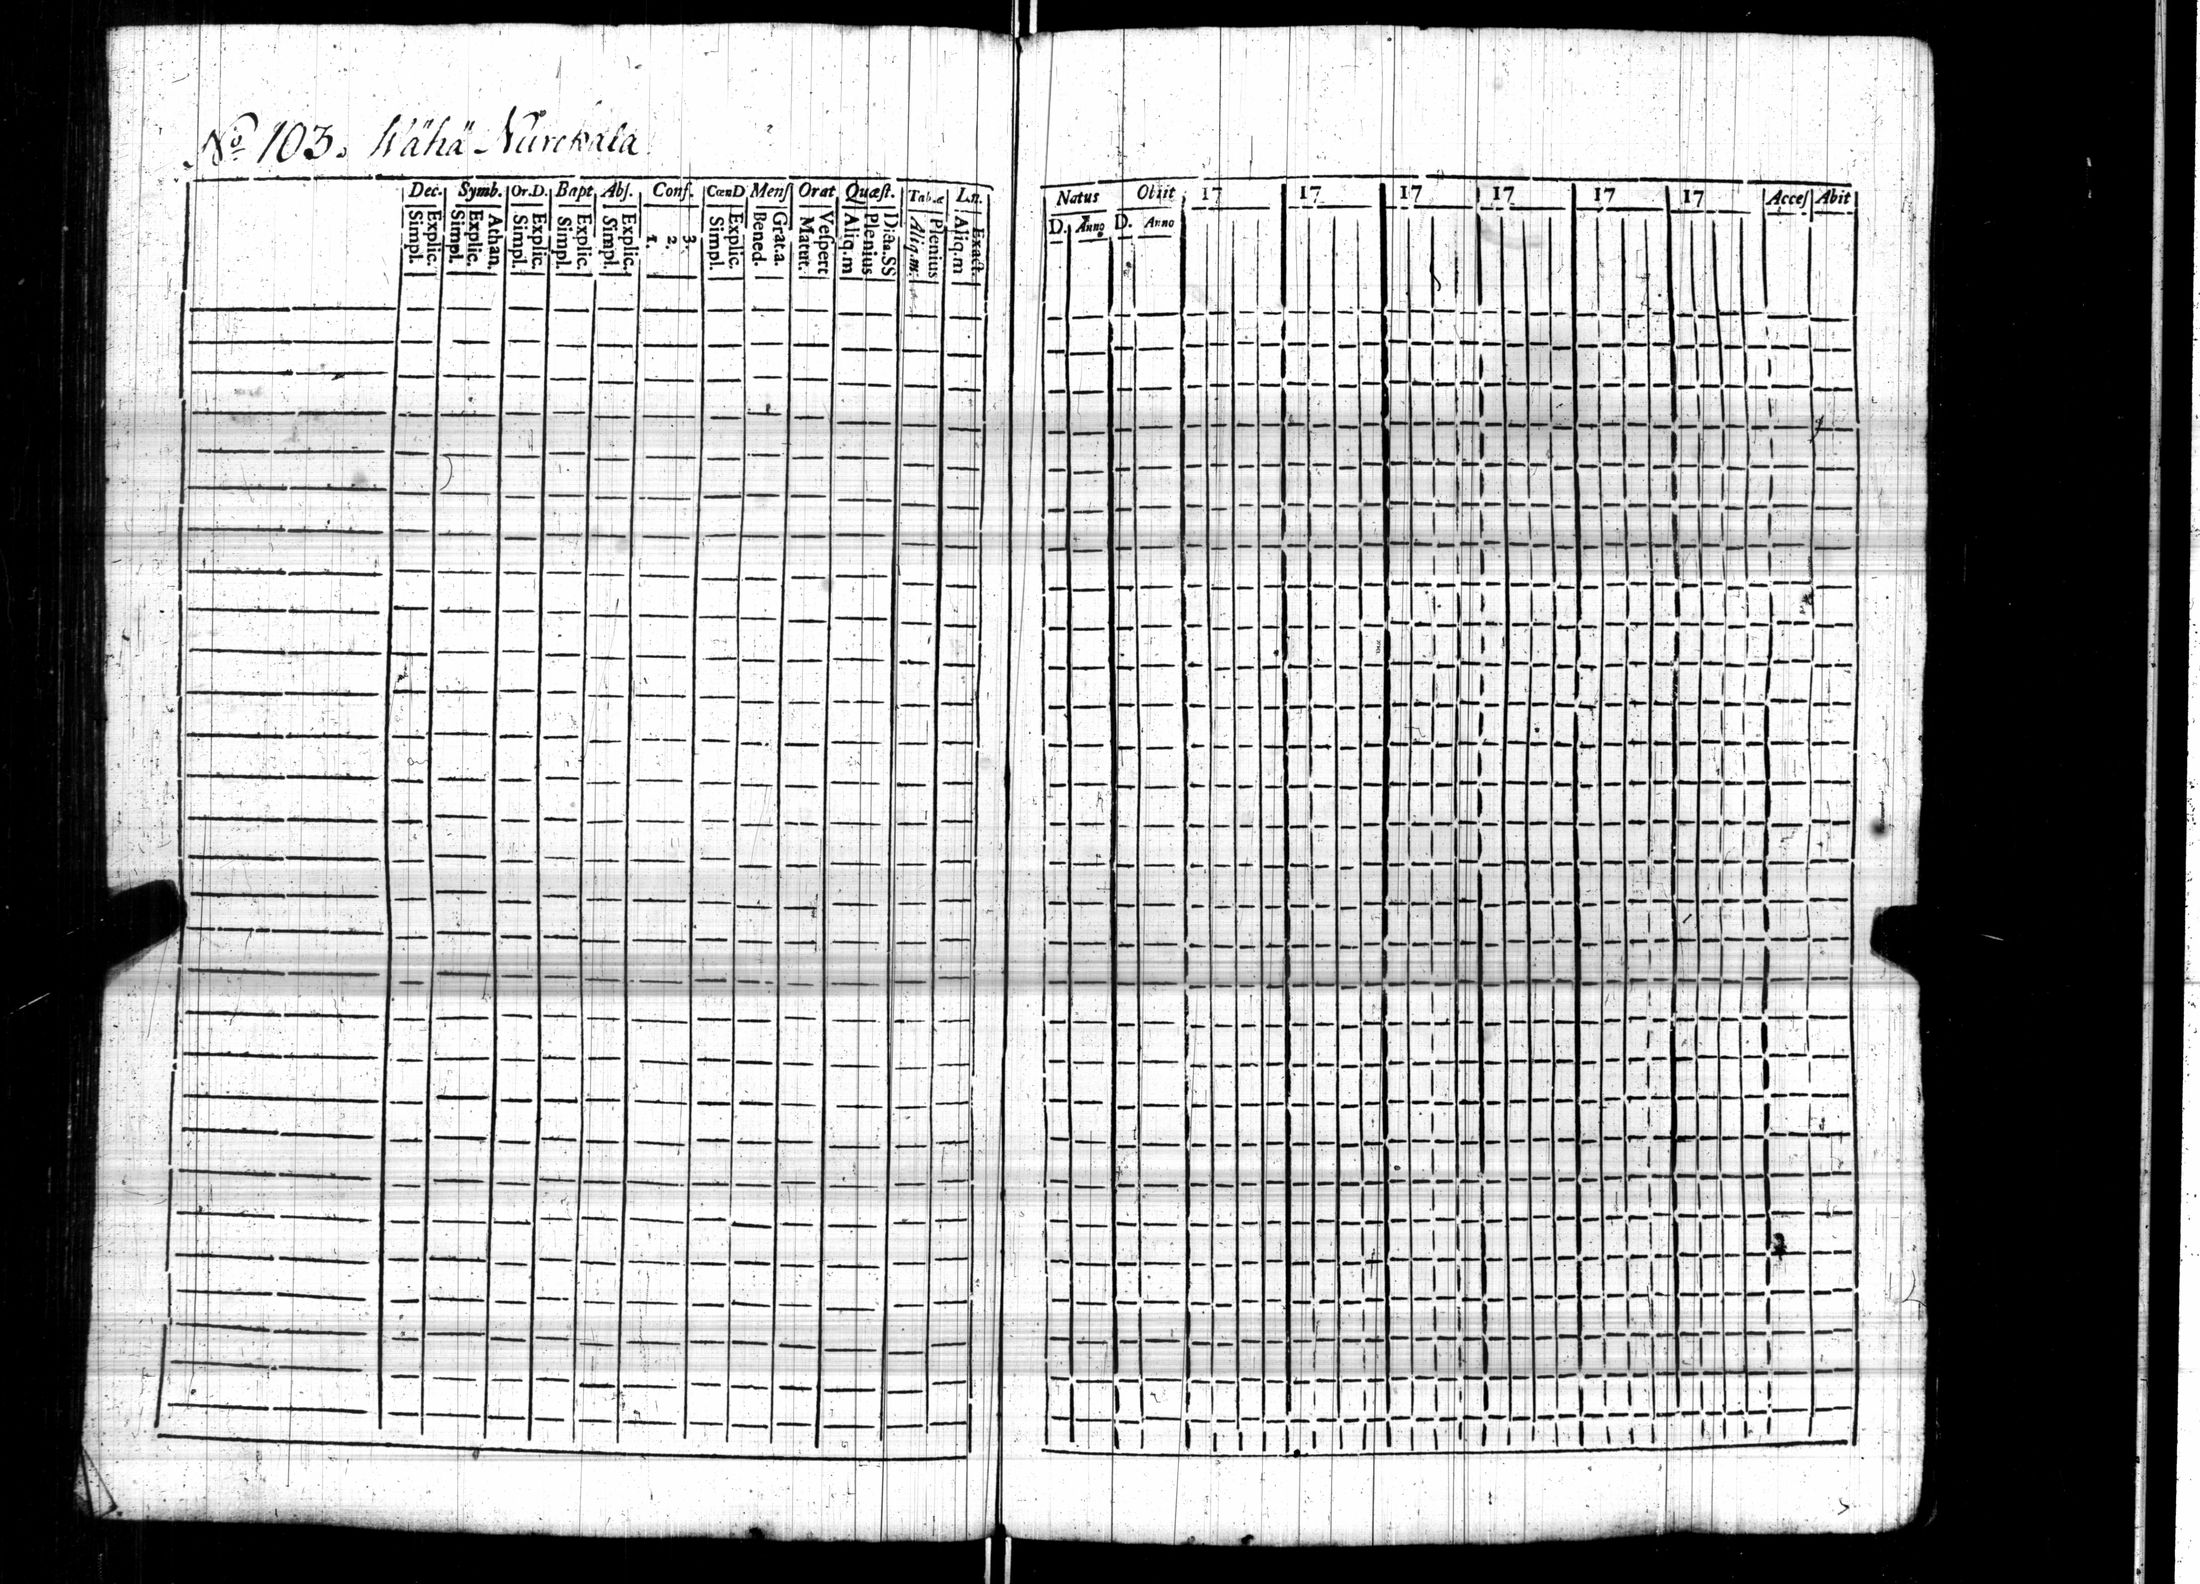 No 103. Wähä Nurckala
Dec. Symb. Or.D. Bapt Abſ. Conf. CœnD Menſ Orat Quæſt. Tabæ L.n.
Simpl. Explic. Simpl. Explic. Athan. Simpl. Explic. Simpl. Explic. Simpl. Explic. 1. 2. 3. Simpl. Explic. Bened. Grat.a. Matut. Veſpert Aliq.m Plenius Dicta.SS Aliq.m. Plenius Aliq.m Exact.
Natus Obiit 17 17 17 17 17 17 Acceſ Abit
D. Anno D. Anno